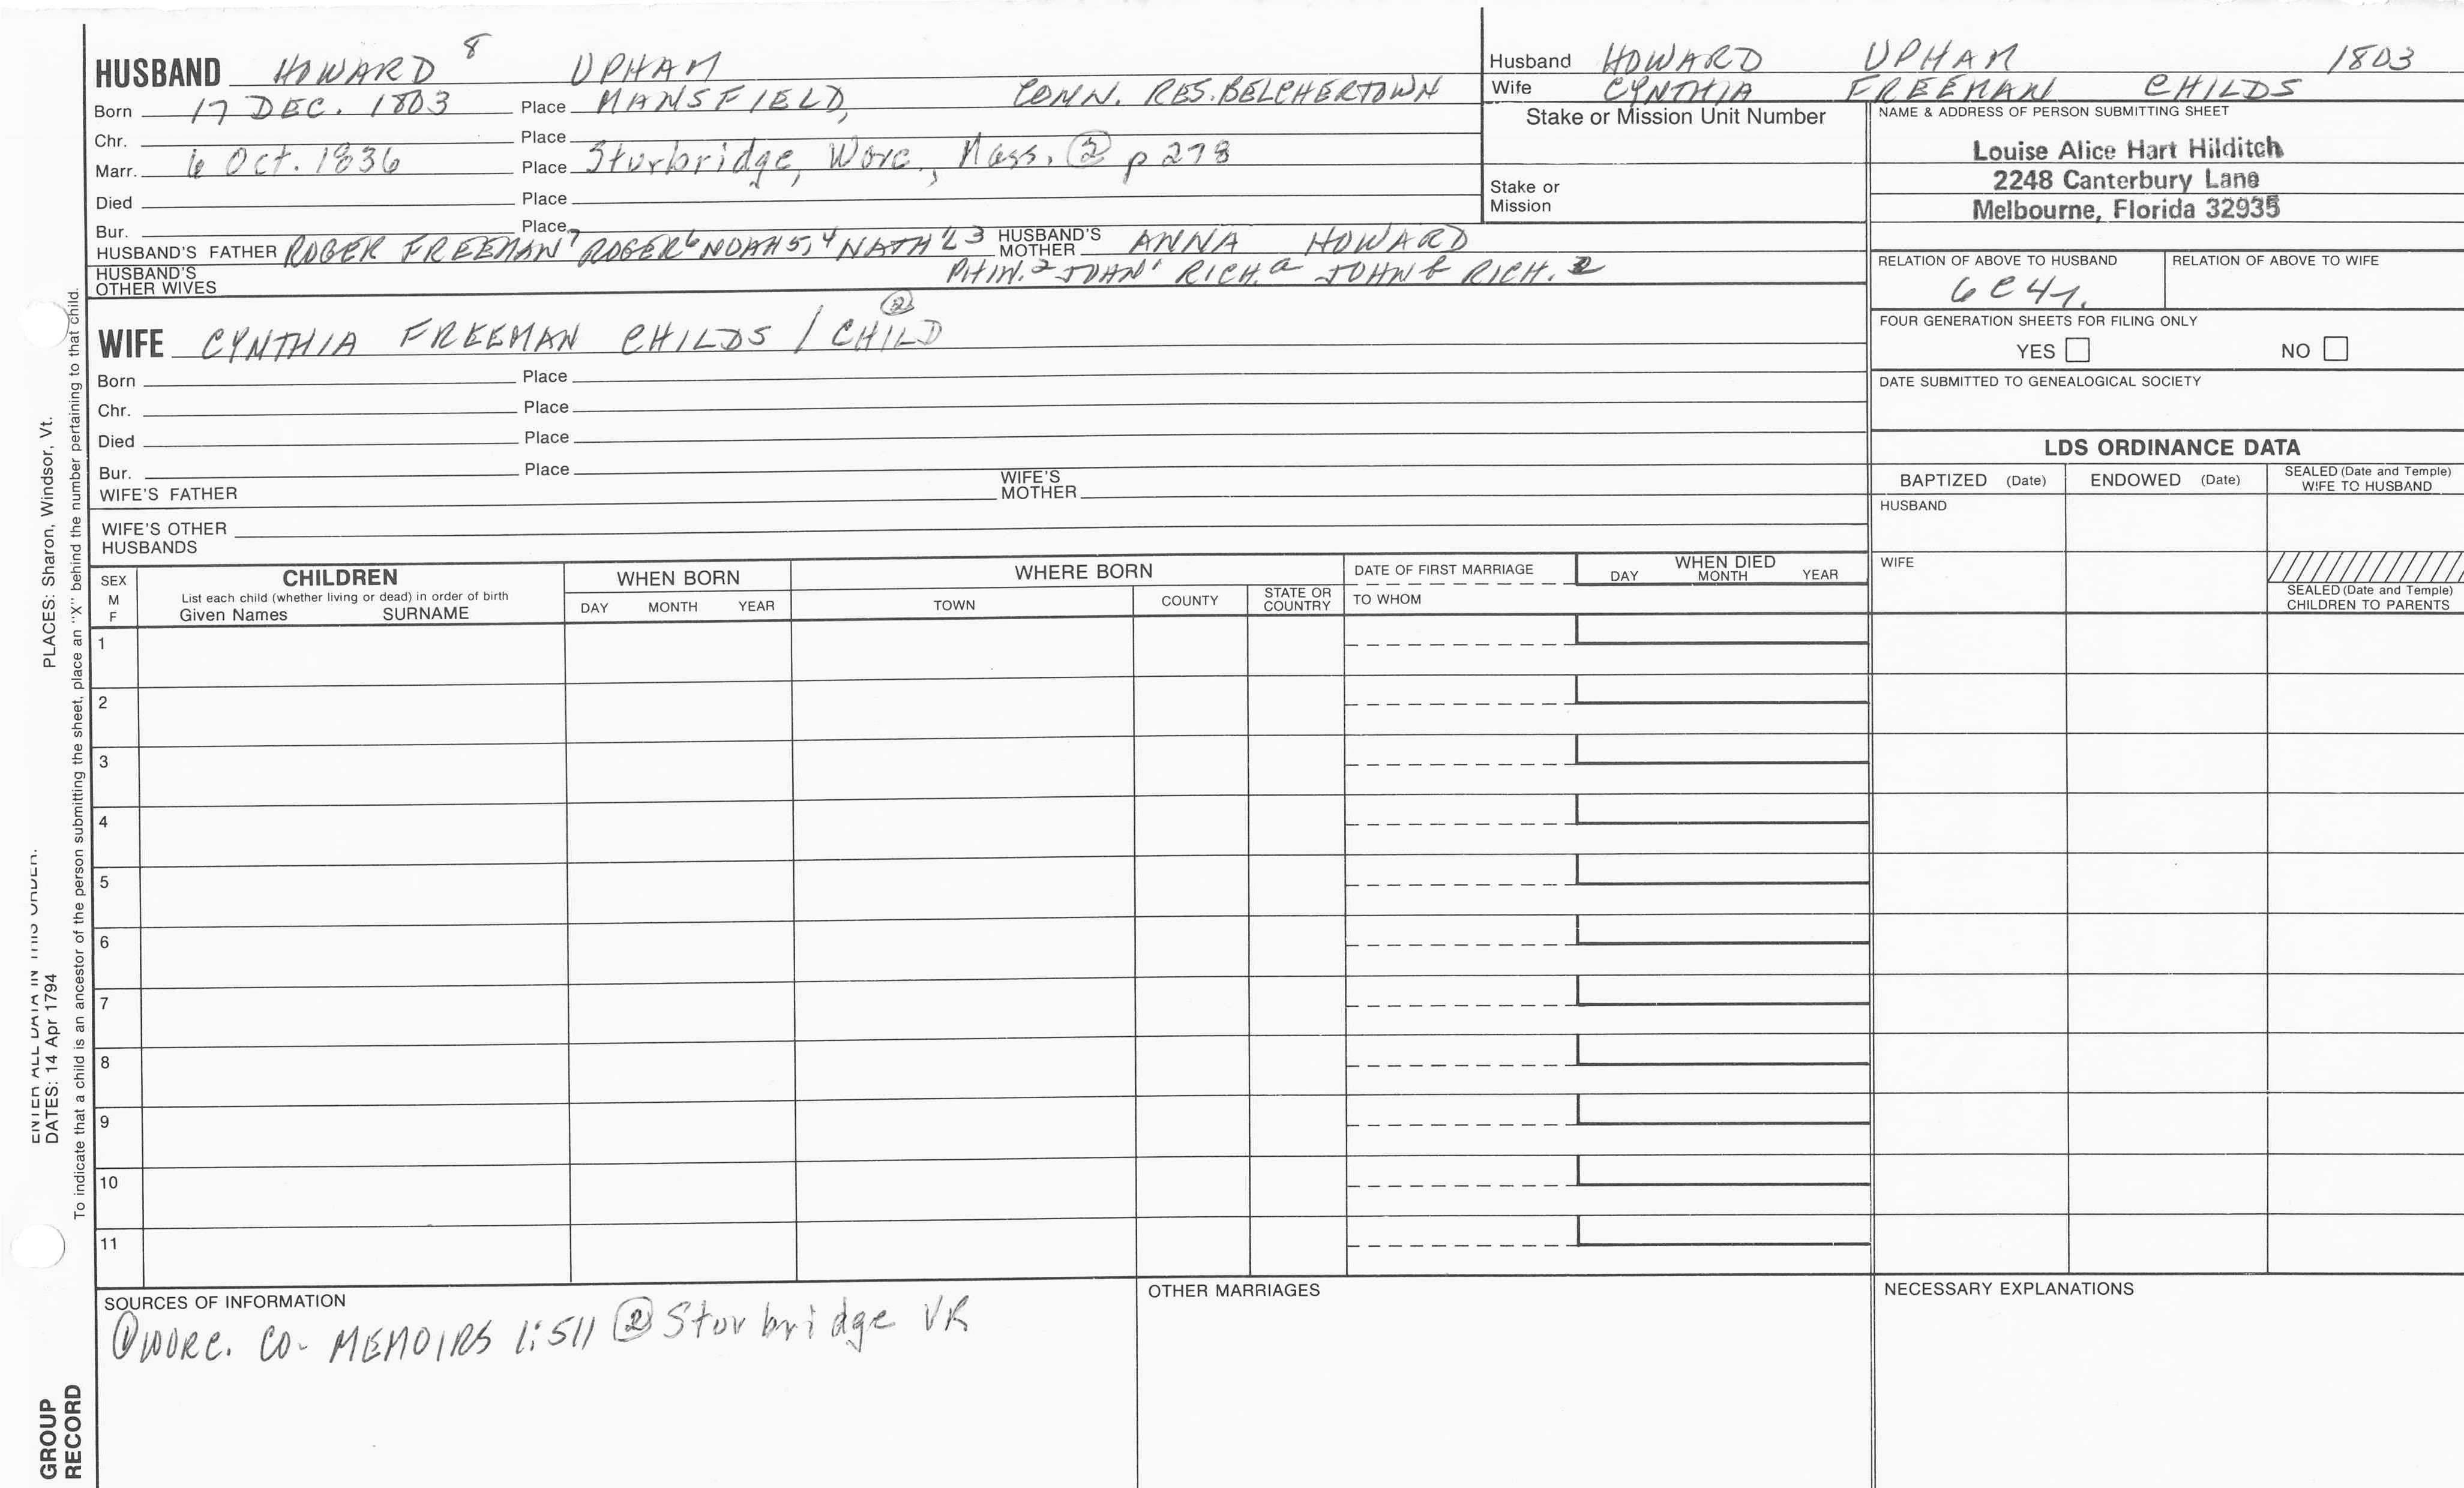 HUSBAND HOWARD 8 UPHAM
Born 17 DEC. 1803 Place MANSFIELD, CONN. RES. BELCHERTOWN
Chr. Place
Marr. 6 Oct. 1836 Place Sturbridge, Worc., Mass. ② p 278
Died Place
Bur. Place
HUSBAND'S FATHER ROGER FREEMAN 7 ROGER 6 NOAH 5, 4 NATH'L 3 HUSBAND'S MOTHER ANNA HOWARD
HUSBAND'S OTHER WIVES PHIN. 2 JOHN 1 RICH. a JOHN b RICH.
Husband HOWARD UPHAM 1803
Wife CYNTHIA FREEMAN CHILDS
Stake or Mission Unit Number
Stake or Mission
NAME & ADDRESS OF PERSON SUBMITTING SHEET
Louise Alice Hart Hilditch
2248 Canterbury Lane
Melbourne, Florida 32935
RELATION OF ABOVE TO HUSBAND RELATION OF ABOVE TO WIFE
6C4r.
FOUR GENERATION SHEETS FOR FILING ONLY
YES NO
DATE SUBMITTED TO GENEALOGICAL SOCIETY
WIFE CYNTHIA FREEMAN CHILDS / CHILD ②
Born Place
Chr. Place
Died Place
Bur. Place
WIFE'S FATHER WIFE'S MOTHER
WIFE'S OTHER HUSBANDS
LDS ORDINANCE DATA
BAPTIZED (Date) ENDOWED (Date) SEALED (Date and Temple) WIFE TO HUSBAND
HUSBAND
WIFE
SEALED (Date and Temple) CHILDREN TO PARENTS
SEX M F
CHILDREN
List each child (whether living or dead) in order of birth
Given Names SURNAME
WHEN BORN
DAY MONTH YEAR
WHERE BORN
TOWN COUNTY STATE OR COUNTRY
DATE OF FIRST MARRIAGE
TO WHOM
WHEN DIED
DAY MONTH YEAR
1
2
3
4
5
6
7
8
9
10
11
SOURCES OF INFORMATION
① WORC. CO. MEMOIRS 1:511 ② Sturbridge VR
OTHER MARRIAGES
NECESSARY EXPLANATIONS
PLACES: Sharon, Windsor, Vt.
ENTER ALL DATA IN THIS ORDER:
DATES: 14 Apr 1794
To indicate that a child is an ancestor of the person submitting the sheet, place an "X" behind the number pertaining to that child.
GROUP
RECORD